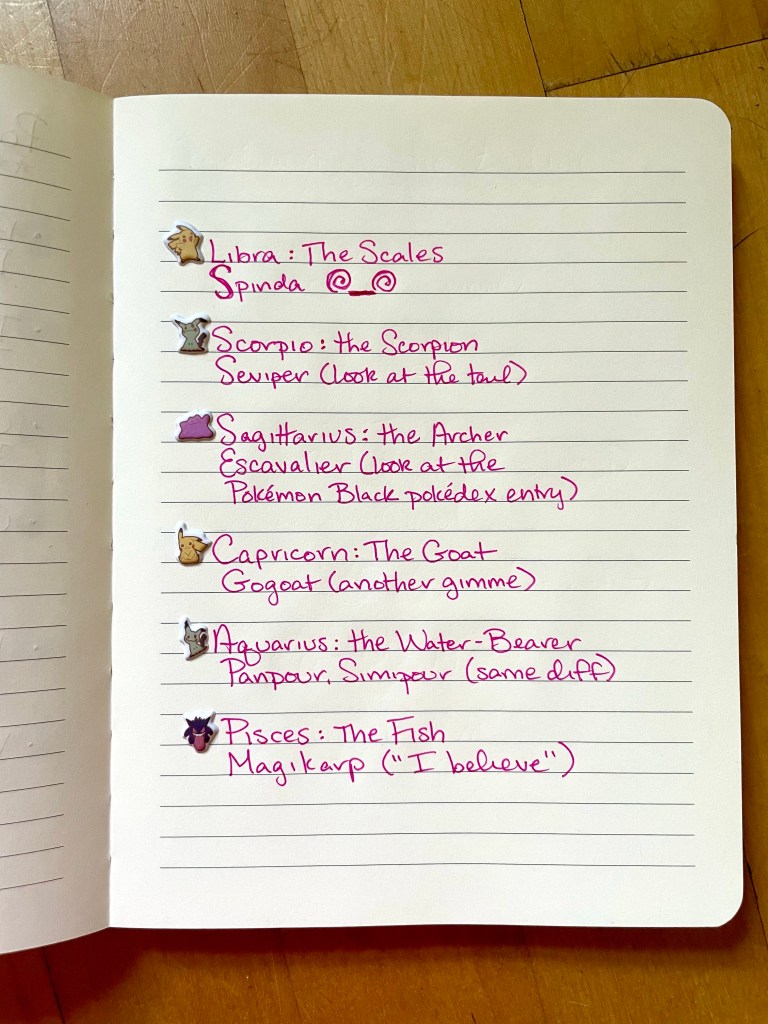 Libra: The Scales
Spinda
Scorpio: the Scorpion
Seviper (look at the tail)
Sagittarius: the Archer
Escavalier (look at the
Pokémon Black pokédex entry)
Capricorn: The Goat
Gogoat (another gimme)
Aquarius: the Water-Bearer
Panpour, Simipour (same diff)
Pisces: The Fish
Magikarp ("I believe")